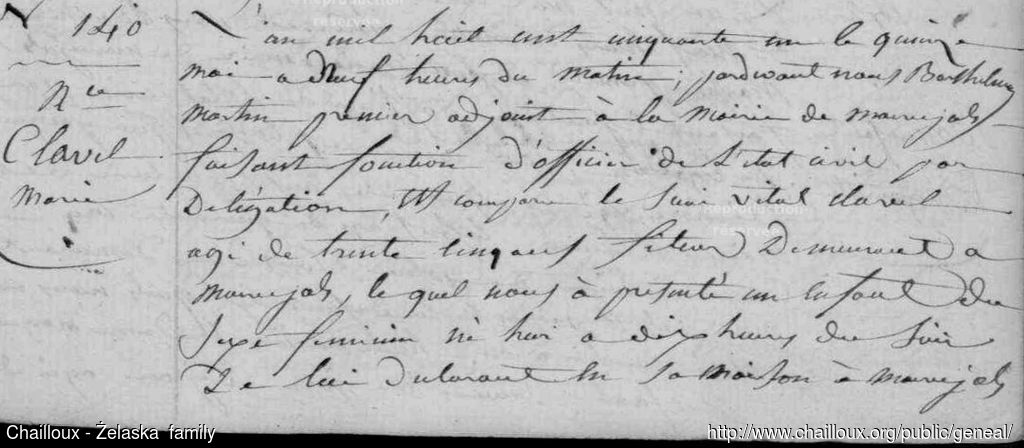 N 140
Nce
Clavel
Marie
L'an mil huit cent cinquante un le quinze
mai a neuf heures du matin, pardevant nous Barthelemy
Martin premier adjoint à la Mairie de Marvejols
faisant fonction d'officier de l'etat civil par
Deligation, est comparu le sieur Vital Clavel
agé de trente cinq ans fileur Demeurant a
Marvejols, le quel nous à présenté un enfant du
Sexe feminin né hier a dix heures du soir
De lui declarant en sa maison à Marvejols
Reproduction
réservée
Reproduction
réservée
Chailloux - Żelaska family
http://www.chailloux.org/public/geneal/